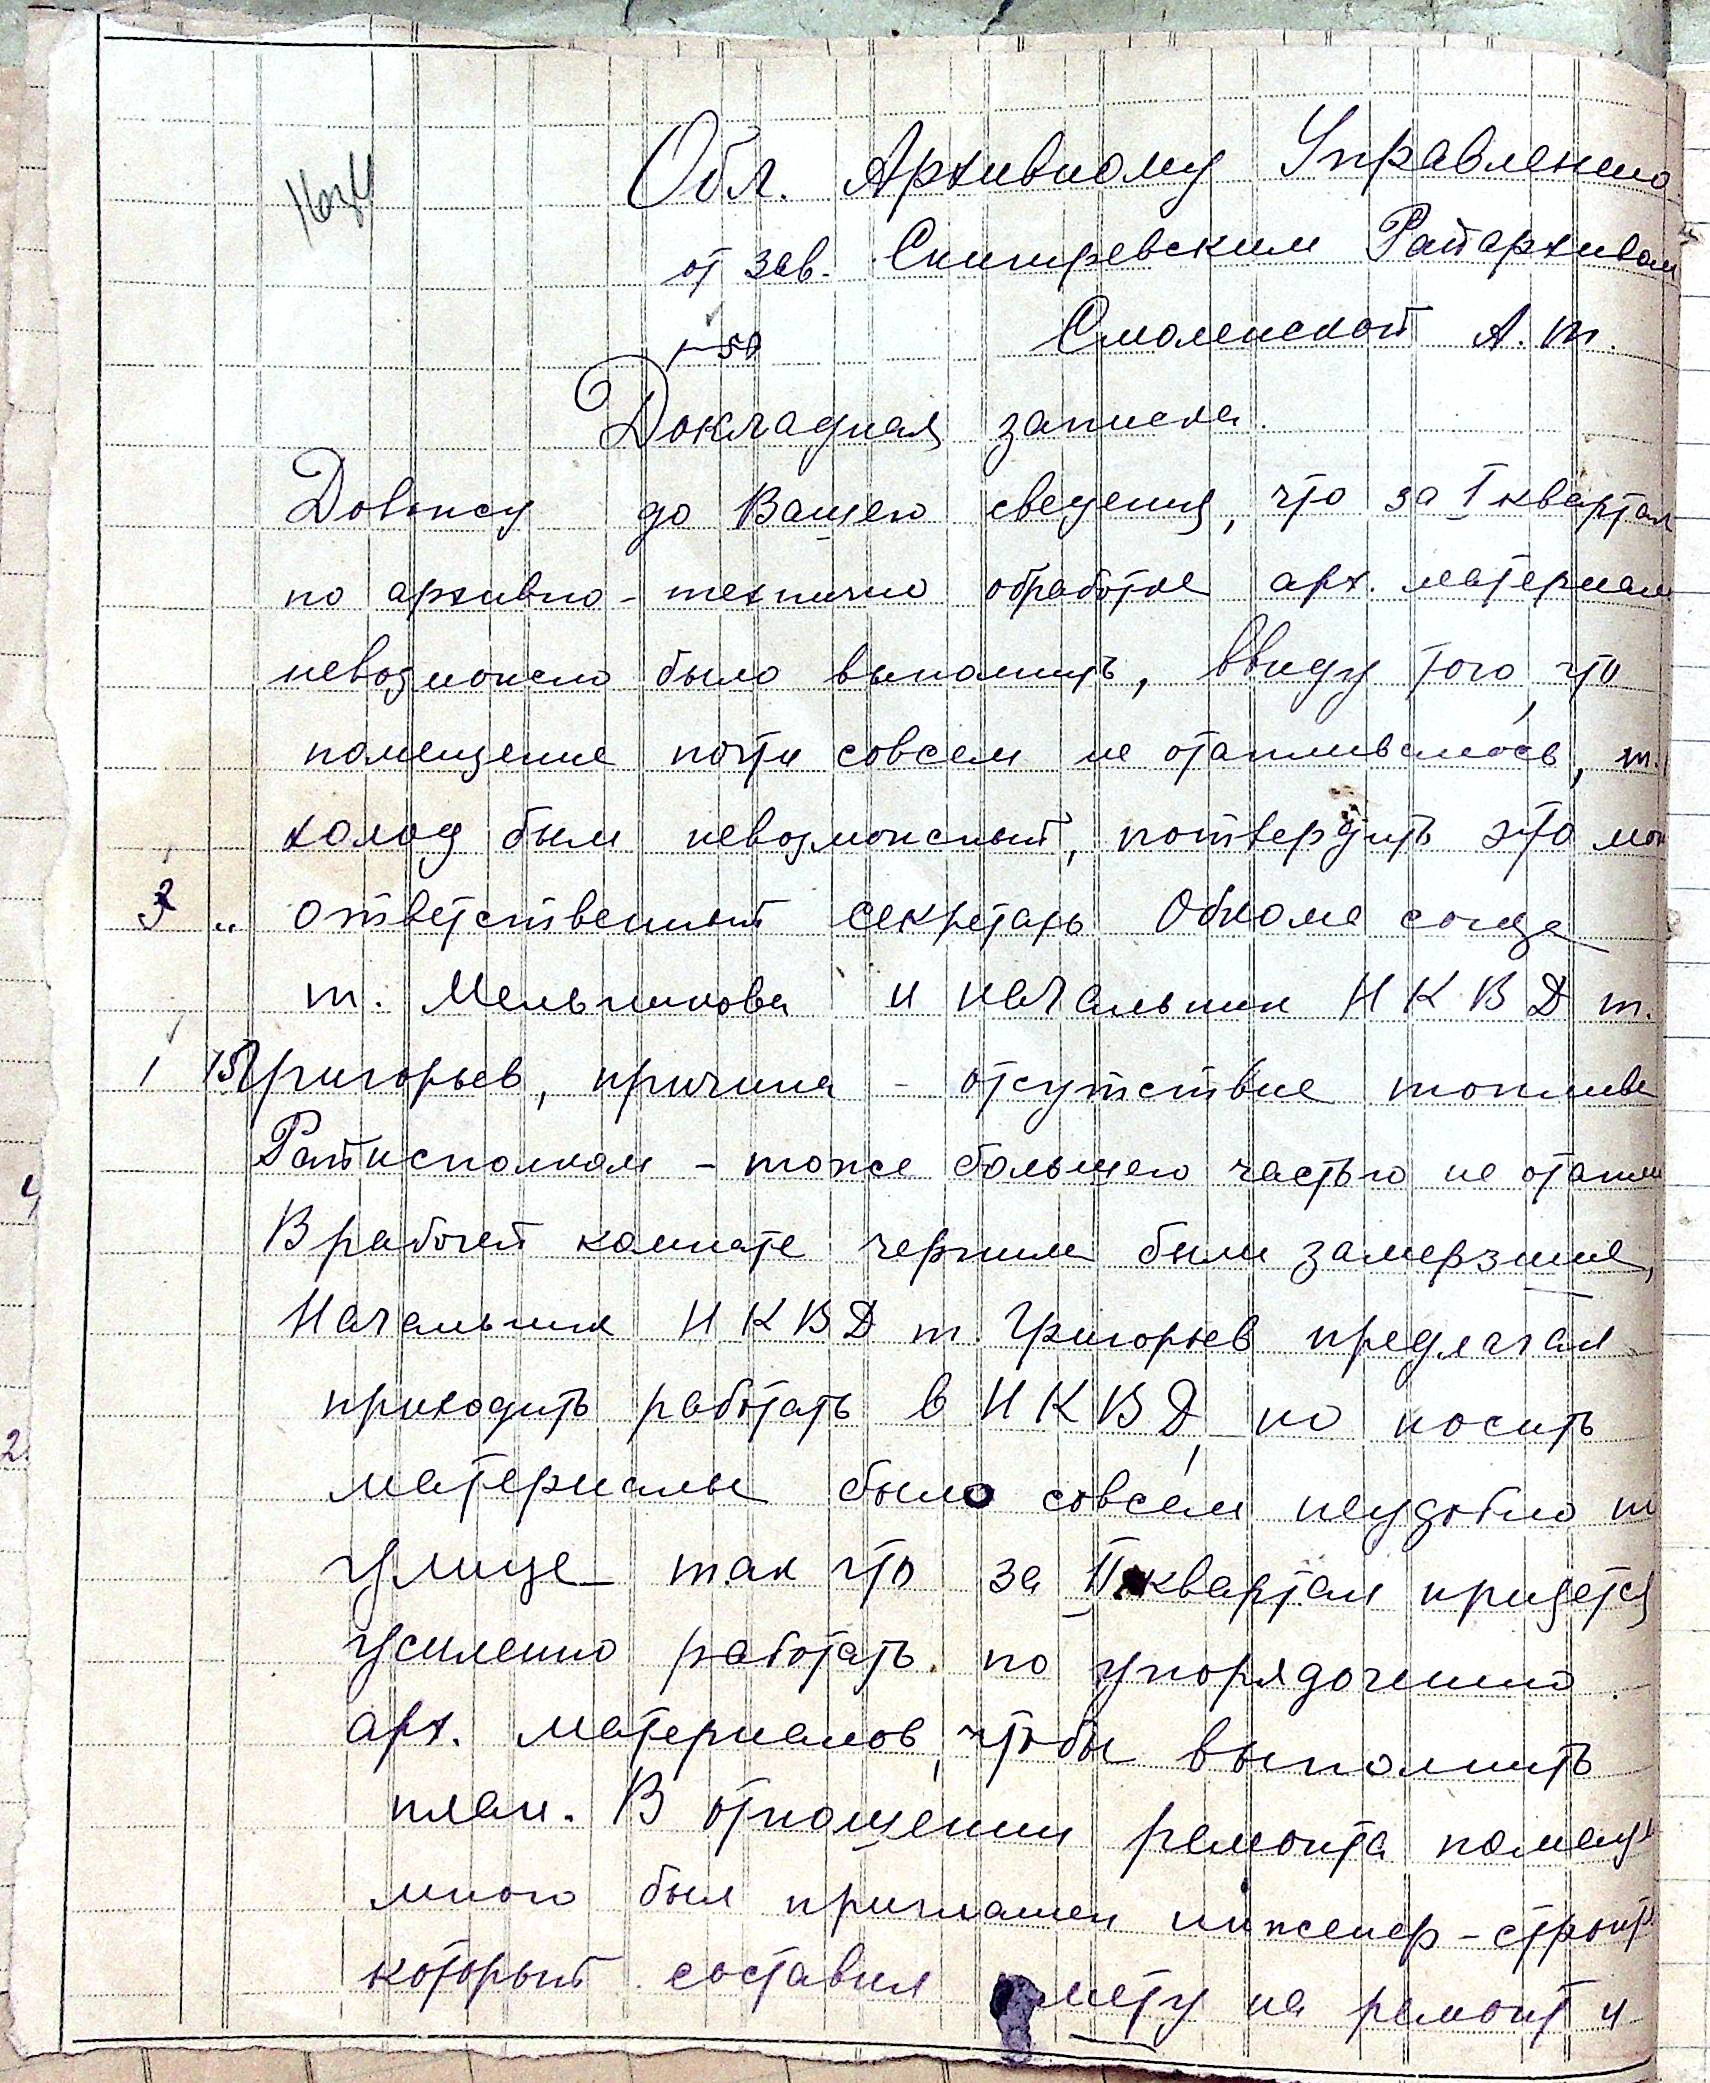 Обл. Архивному Управлению
от зав. Снигиревским Райархивом
Смоленской А. т.
Докладная записка.
Довожу до Вашего сведения, что за I квартал
по архивно-технично обработке арх. материалы
невозможно было выполнить, ввиду того, что
помещение почти совсем не отапливалось, т.
холод был невозможный, потвердить это мож
3 „ ответственный секретарь Обкома союза
т. Мельникова и начальник НКВД т.
1 Григорьев, причина - отсутствие топлива
Райисполком - тоже большею частью не отапли
В рабочей комнате чернила были замерзшие,
Начальник НКВД т. Григорьев предлагал
приходить работать в НКВД, но носить
материалы было совсем неудобно по
улице - так что за II квартал придется
усиленно работать по упорядочению
арх. материалов, чтобы выполнить
план. В отношении ремонта помеще
мною был приглашен инженер-строит
который составил смету на ремонт и